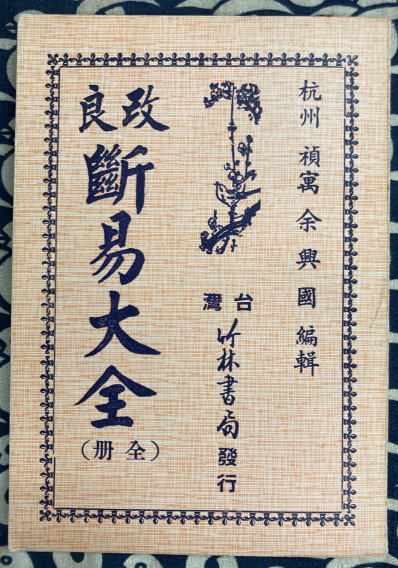 杭州 禎寓 余興國編輯
台灣
竹林書局發行
改良
斷易大全
（全册）